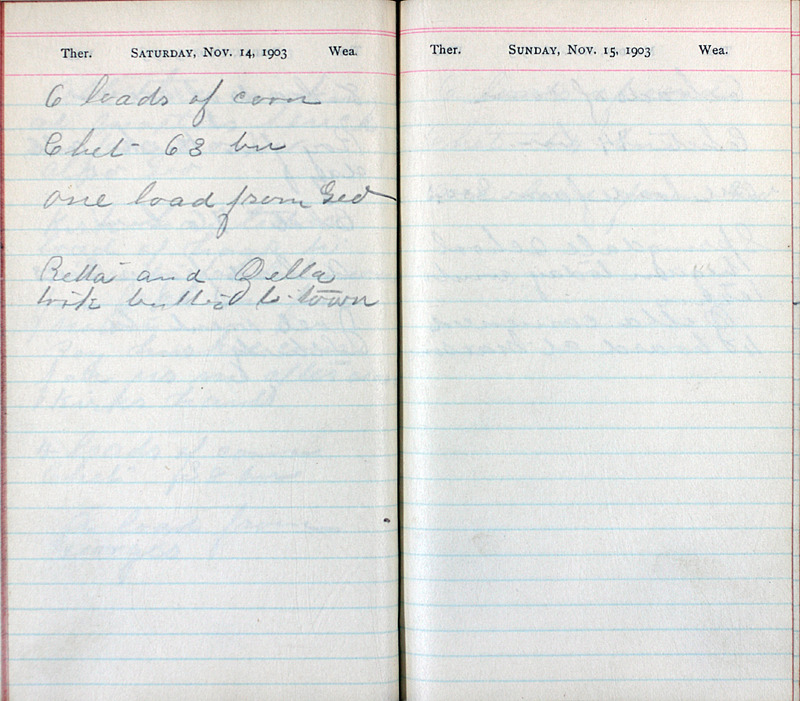 Ther. SATURDAY, NOV. 14, 1903 Wea.
6 loads of corn
Chet - 63 bu
one load from Ged
Retta and Zella
to town
Ther. SUNDAY, NOV. 15, 1903 Wea.